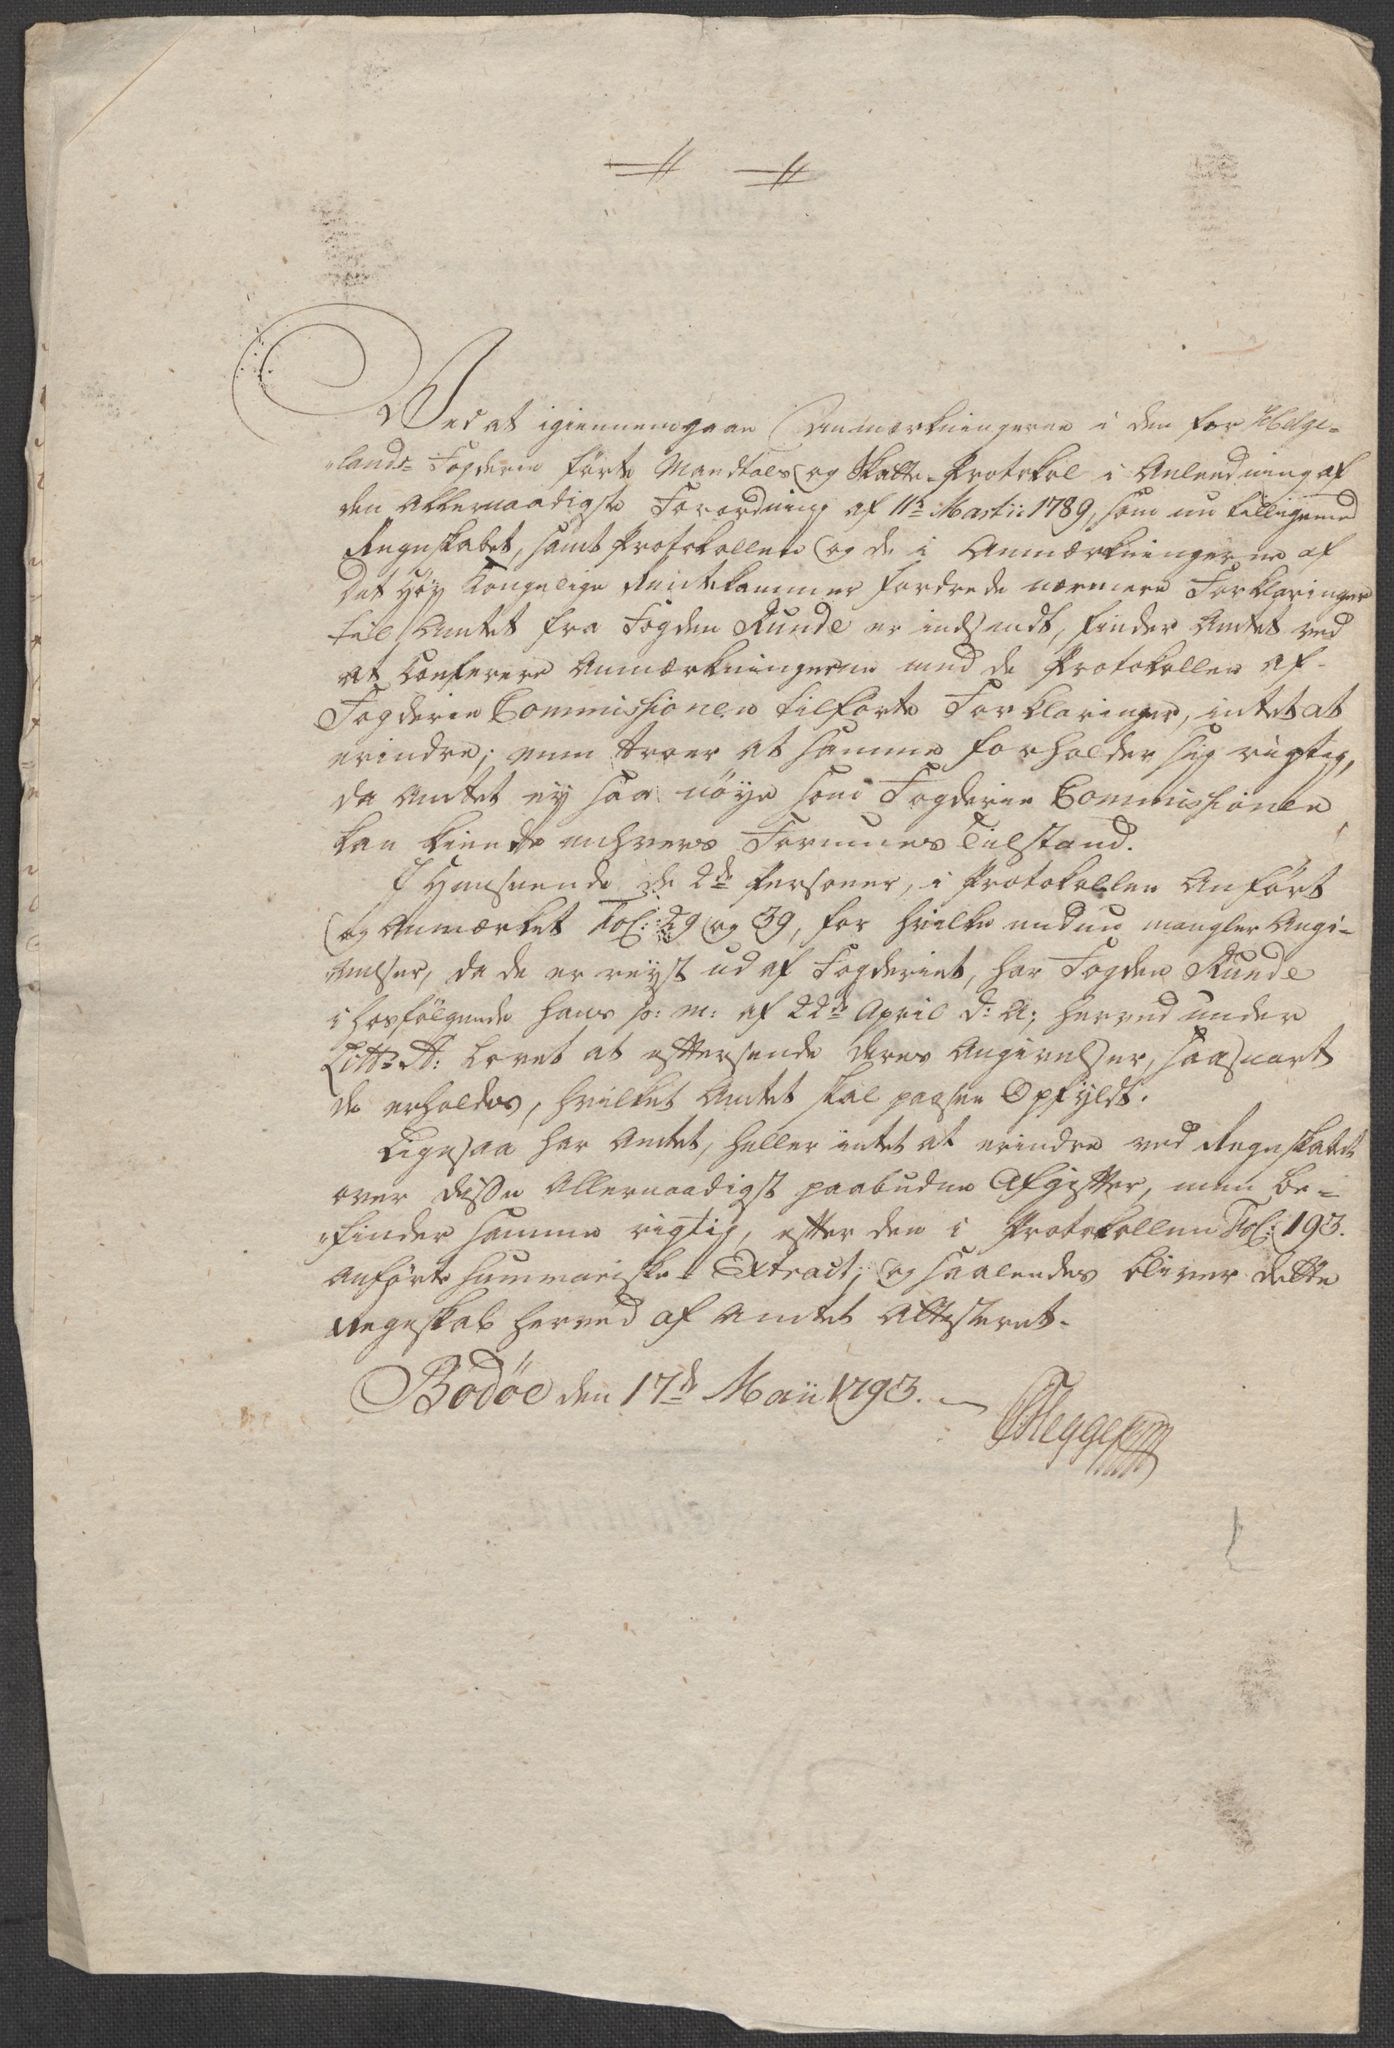 Ved at igiennemgaae Anmærkningerne i den for Helge-
lands Fogderie førte Mandtals og Skatte-Protokol i Anledning af
den Allernaadigste Forordning af 11te Martii 1789, som nu tilligemed
Regnskabet, samt Protokollen og de i Anmærkningerne af
Det Høy Kongelige Rentekammer fordrede nærmere Forklaringer
til Amtet fra Fogden Runde er indsendt, finder Amtet ved
at Conferere Anmærkningerne med de Protokollen af
Fogderie Commissionen tilførte Forklaringer, intet at
erindre; men troer at samme forholder sig rigtig,
da Amtet ey saa nøye som Fogderie Commissionen
kan kiende enhvers Formues Tilstand.
I Henseende de 2de Personer, i Protokollen Anført
og Anmærket Fol: 29 og 39, for hvilke endnu mangler Angi-
velser, da de er reyst ud af Fogderiet, har Fogden Runde
i hosfølgende hans p: m: af 22de April d: A: herved under
Litt: A: lovet at eftersende deres Angivelser, saasnart
de erholdes, hvilket Amtet skal paasee Opfyldt.
Ligesaa har Amtet, heller intet at erindre ved Regnskabet
over disse Allernaadigst paabudne Afgifter, men be-
finder samme rigtig, efter den i Protokollen Fol: 193.
Anførte Summariske Extract; og saaledes bliver dette
Regnskab herved af Amtet Attesteret.
Bodøe den 17de Maii 1793.